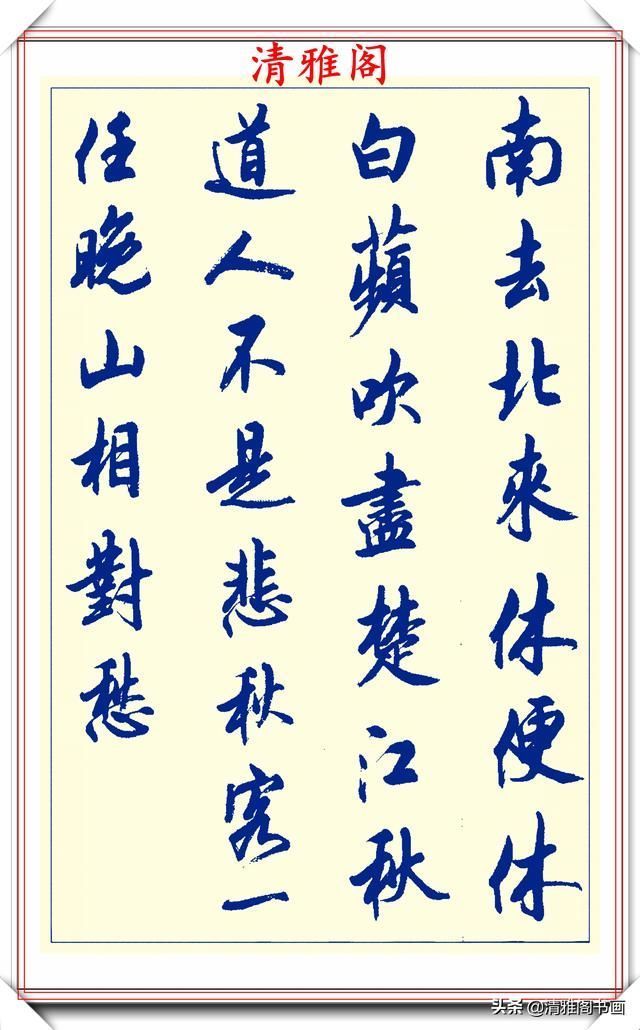 清雅阁
南去北來休便休
白蘋吹盡楚江秋
道人不是悲秋客一
任晚山相對愁
头条@清雅阁书画